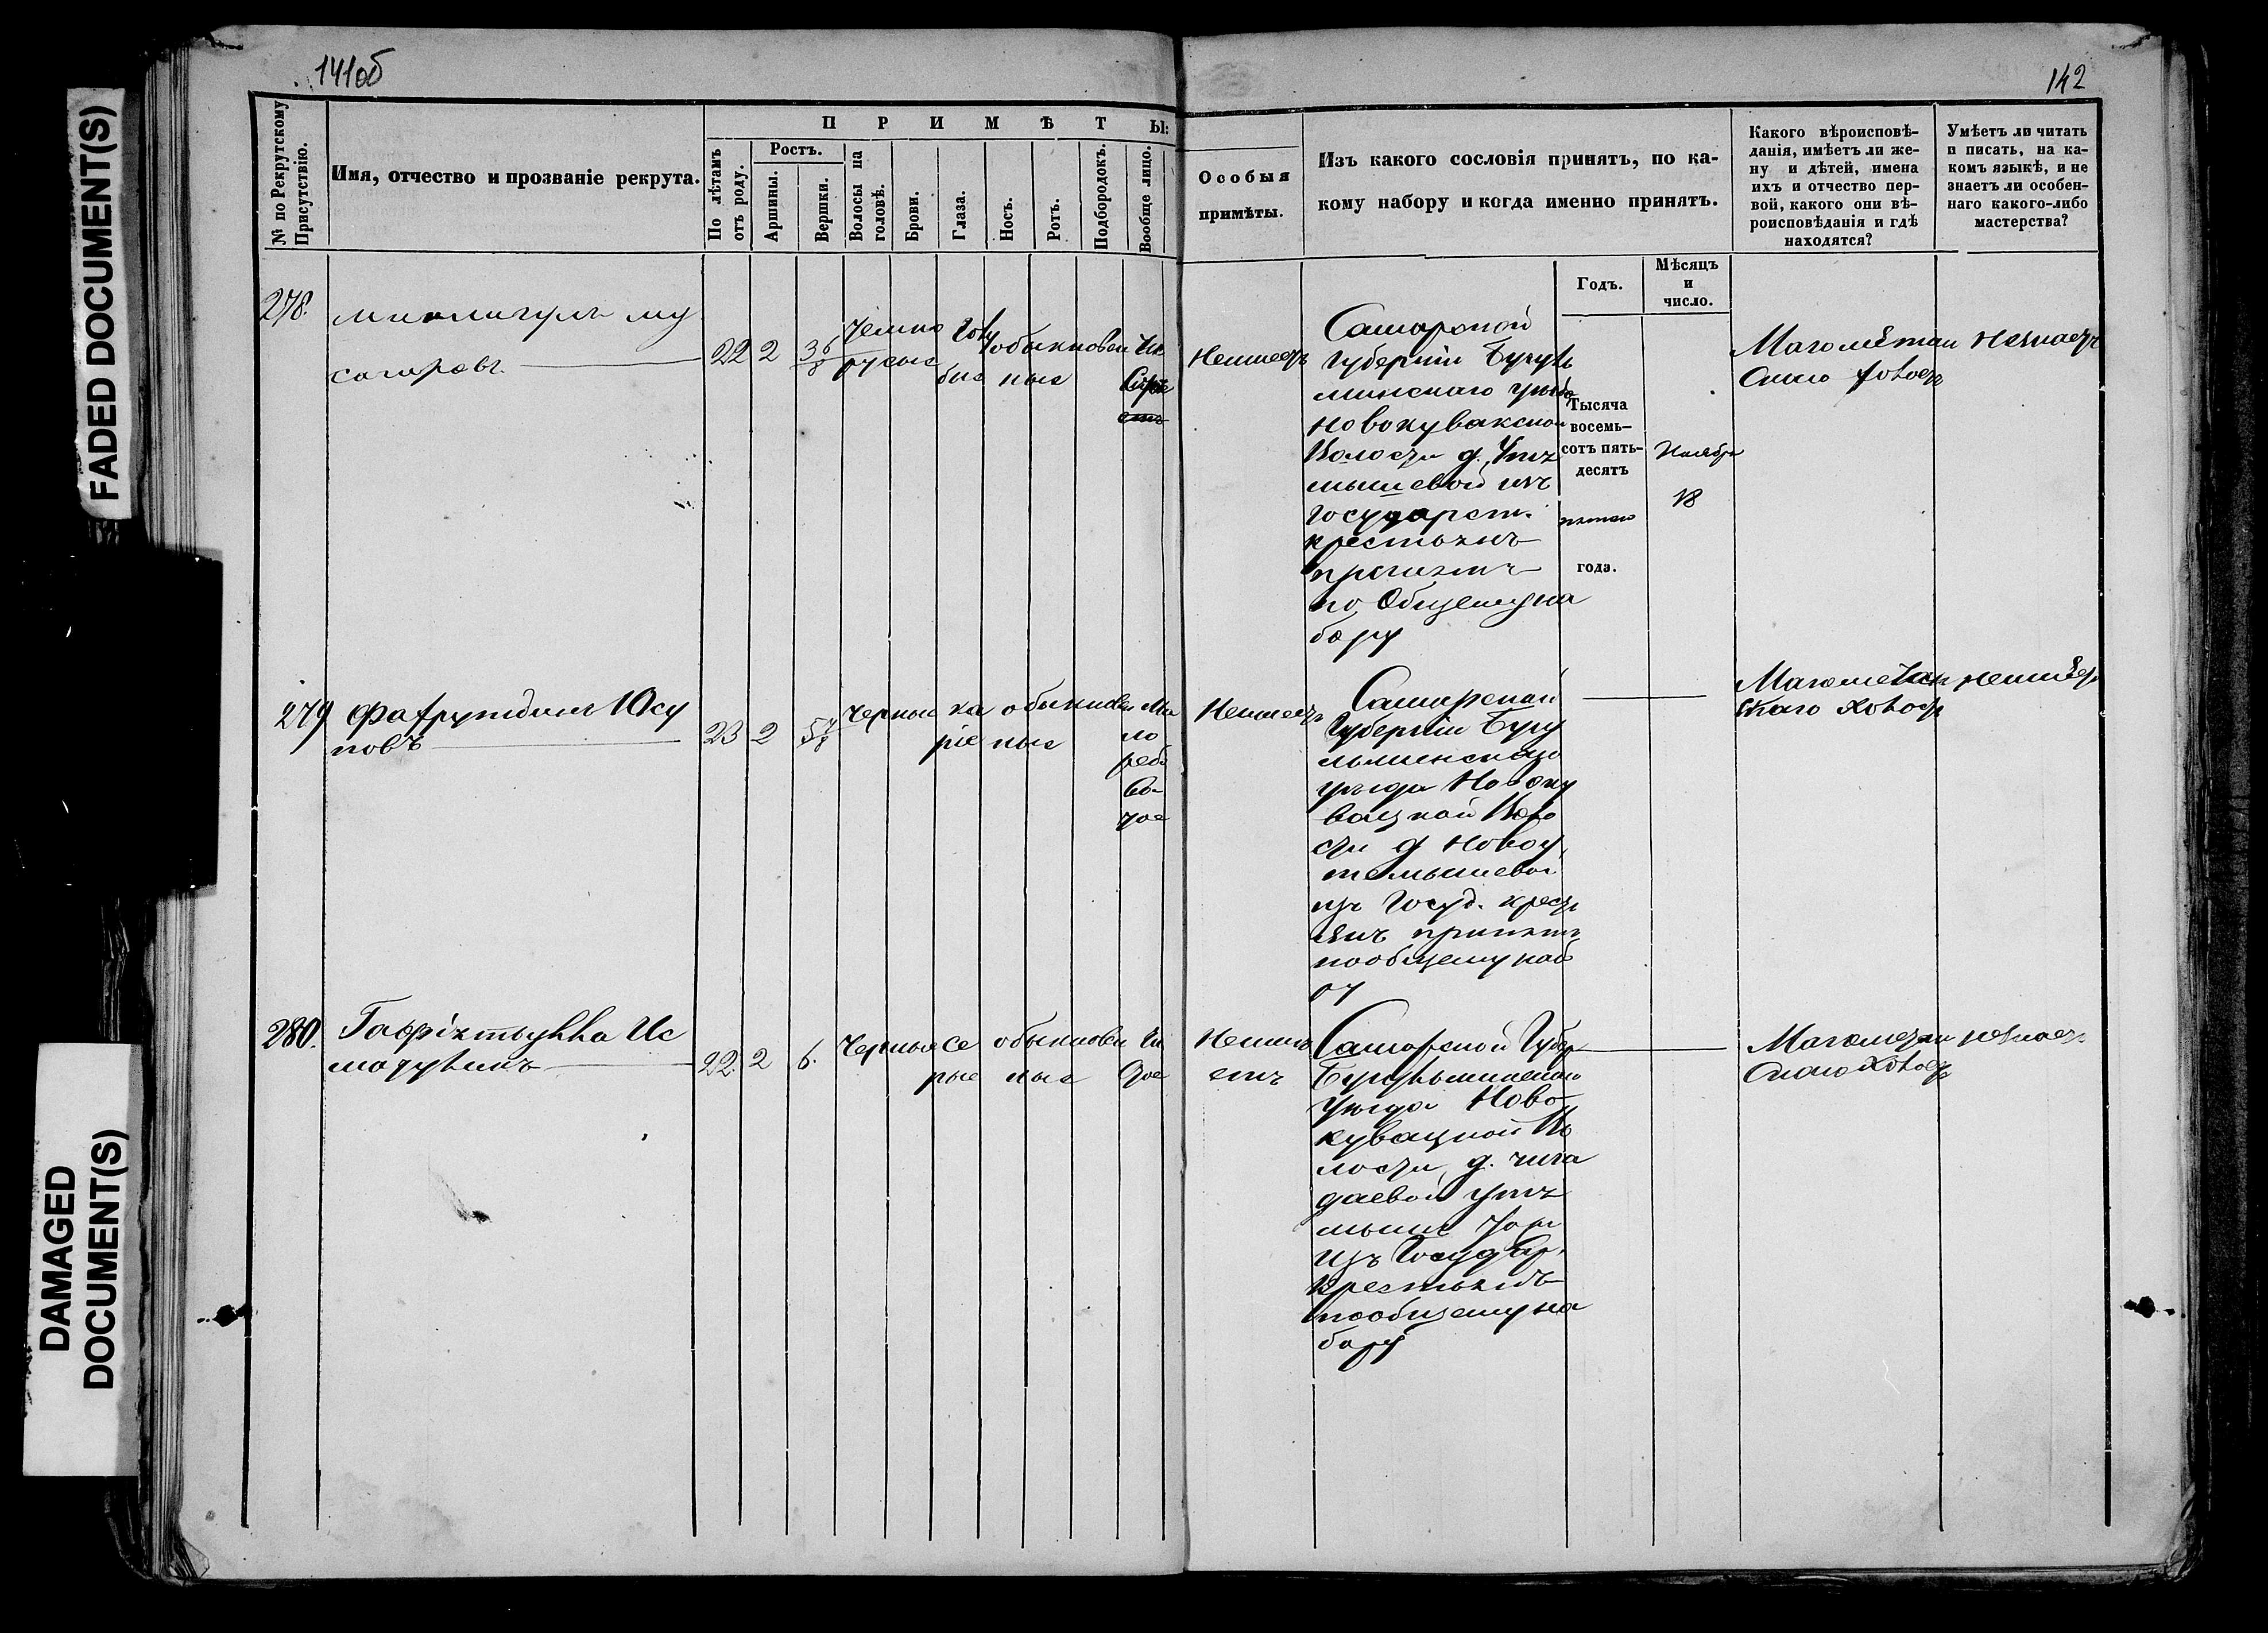 141об
142
FADED DOCUMENT(S)
DAMAGED
DOCUMENT(S)
№ по Рекрутскому
Присутствію.
Имя, отчество и прозваніе рекрута.
ПРИМѢТЫ:
По лѣтамъ
отъ роду.
Ростъ.
Аршины.
Вершки.
Волосы на
головѣ.
Брови.
Глаза.
Носъ.
Ротъ.
Подбородокъ.
Вообще лицо.
Особыя
примѣты.
Изъ какого сословія принятъ, по ка-
кому набору и когда именно принятъ.
Какого вѣроисповѣ-
данія, имѣетъ ли же-
ну и дѣтей, имена
ихъ и отчество пер-
вой, какого они вѣ-
роисповѣданія и гдѣ
находятся?
Умѣетъ ли читать
и писать, на ка-
комъ языкѣ, и не
знаетъ ли особен-
наго какого-либо
мастерства?
Годъ.
Мѣсяцъ
и
число.
278.
сагировъ
22 2 3 6/8
темно
русые
голу
бые
обыкновен
ные
Чи
неимеетъ
Самарской
Губерніи Бугуль
минскаго уезда
новокувакской
Волости д. Утя
мышевой изъ
Государст.
крестьянъ
принятъ
по Общему на
бору
Тысяча
восемь-
сотъ пять-
десятъ
пятаго
года.
Ноября
18
Магометан
скаго холостъ
незнаетъ
279
Фахрутдинъ Юсу
повъ
23 2 5 7/8
черные
ка
ріе
обыкновен
ные
Ма
ло
рябо
ва
тое
Неимеетъ
Самарской
Губерніи Бугу
льминскаго
уезда Новоку
вацкой Воло
сти д Новоу
тямышевой
изъ Госуд. крест
янъ принятъ
пообщему наб
ру
Магометан
скаго холостъ
280.
22. 2 6.
Черные
Се
рые
обыкновен
ные
Чи
стое
Неиме
етъ
Самарской Губер
Бугульминскаго
Уезда Ново
кувацкой Во
лости д. чига
даевой утя
мышъ тожъ
изъ Государ.
Крестьянъ
пообщему на
бору
Магометан
скаго холостъ
незнаетъ